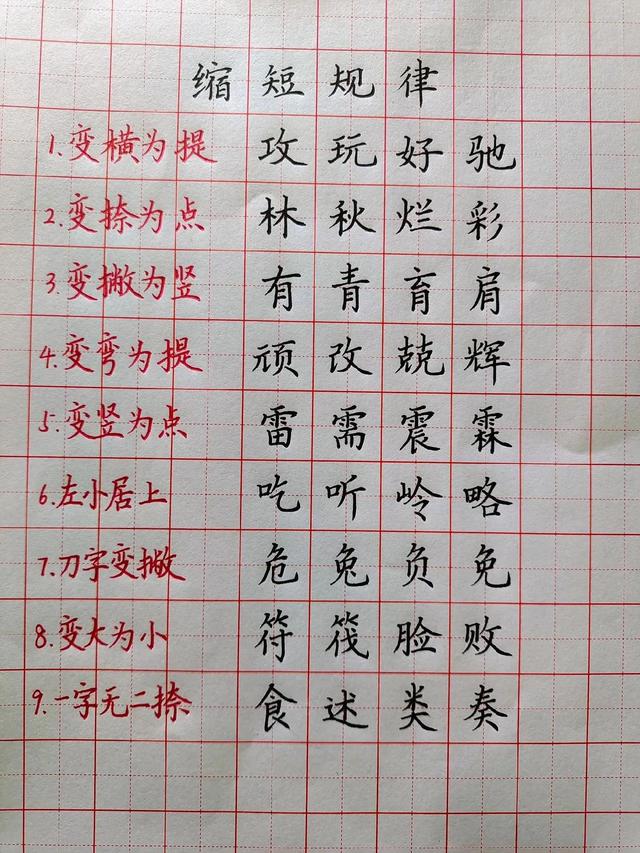 缩短规律
1.变横为提 攻玩好驰
2.变捺为点 林秋烂彩
3.变撇为竖 有青育肩
4.变弯为提 顽改兢辉
5.变竖为点 雷需震霖
6.左小居上 吃听岭略
7.刀字变撇 危兔负免
8.变大为小 符筏脸败
9.一字无二捺 食述类奏